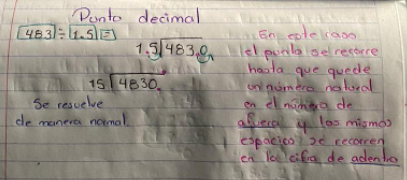 Punto decimal
483 ÷ 1.5 =
1.5 483.0
15 4830.
Se resuelve
de manera normal.
En este caso
el punto se recorre
hasta que quede
un número natural
en el número de
afuera y los mismos
espacios se recorren
en la cifra de adentro